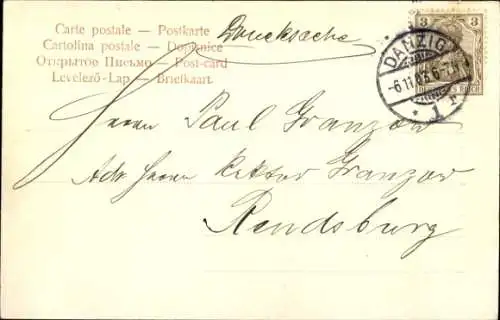 Carte postale — Postkarte
Cartolina postale — Dopisnice
Открытое Письмо — Post-card
Levelező-Lap — Briefkaart
Drucksache
3 3
DANZIG
-6.11.03.6-7N
* 1r
DEUTSCHES REICH
Herrn Paul Granzow
Adr. Herrn Rektor Granzow
Rendsburg